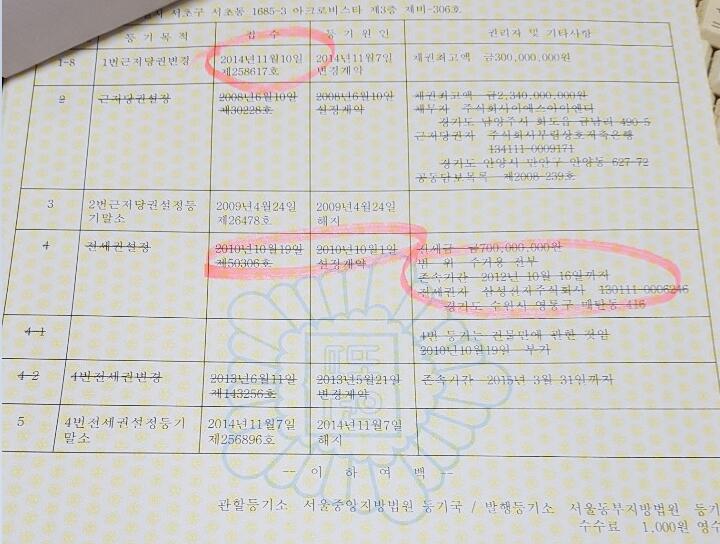 서초구 서초동 1685-3 아크로비스타 제3층 제비-306호
등기목적 접수 등기원인 권리자 및 기타사항
1-8 1번근저당권변경 2014년11월10일 제258617호 2014년11월7일 변경계약 채권최고액 금300,000,000원
2 근저당권설정 2008년6월10일 제30228호 2008년6월10일 설정계약 채권최고액 금2,340,000,000원
채무자 주식회사이에스아이엔디
경기도 남양주시 화도읍 금남리 490-5
근저당권자 주식회사부림상호저축은행
134111-0009171
경기도 안양시 만안구 안양동 627-72
공동담보목록 제2008-239호
3 2번근저당권설정등기말소 2009년4월24일 제26478호 2009년4월24일 해지
4 전세권설정 2010년10월19일 제50306호 2010년10월1일 설정계약 전세금 금700,000,000원
범 위 주거용 전부
존속기간 2012년 10월 16일까지
전세권자 삼성전자주식회사 130111-0006246
경기도 수원시 영통구 매탄동 416
4-1 4번 등기는 건물만에 관한 것임
2010년10월19일 부기
4-2 4번전세권변경 2013년6월11일 제143256호 2013년5월21일 변경계약 존속기간 2015년 3월 31일까지
5 4번전세권설정등기말소 2014년11월7일 제256896호 2014년11월7일 해지
-- 이 하 여 백 --
관할등기소 서울중앙지방법원 등기국 / 발행등기소 서울동부지방법원 등기
수수료 1,000원 영수